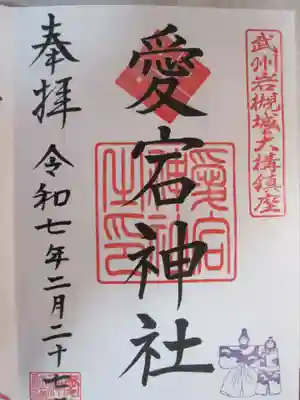 武州岩槻城大構鎮座
愛宕神社
愛宕神社之印
奉拝
令和七年二月二十七